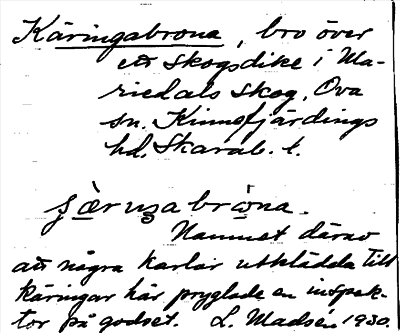 Käringabrona, bro över
ett skogsdike i Ma-
riedals skog, Ova
sn. Kinnefjärdings
hd. Skarab. l.
Namnet därav
att några karlar utklädda till
käringar här pryglade en inspek-
tor på godset. L. Madsén 1930.